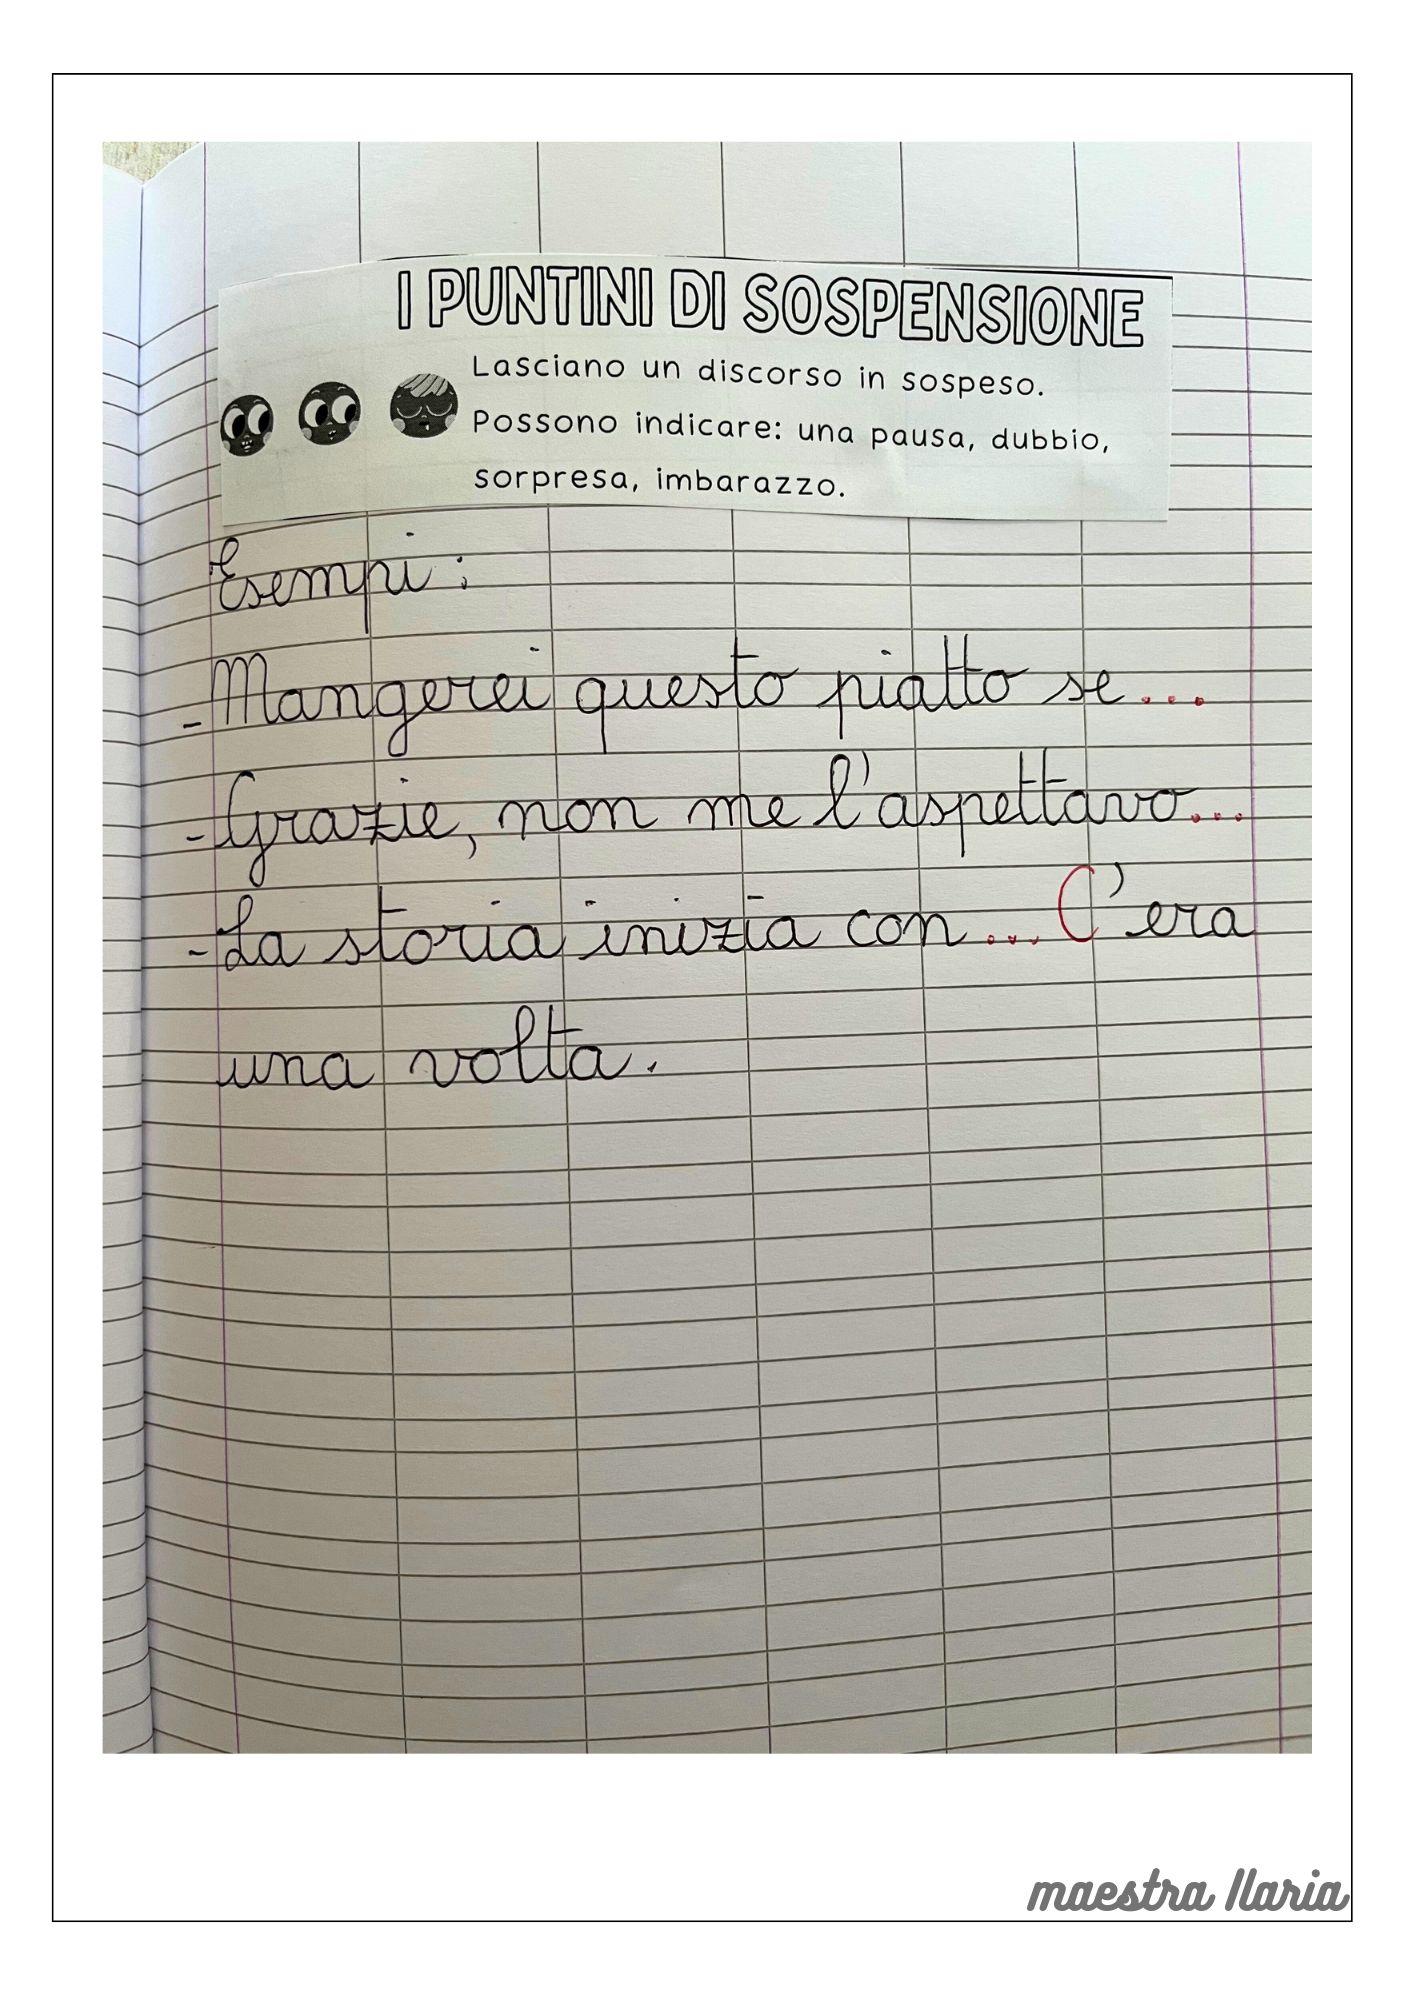 I PUNTINI DI SOSPENSIONE
Lasciano un discorso in sospeso.
Possono indicare: una pausa, dubbio,
sorpresa, imbarazzo.
Esempi:
- Mangerei questo piatto se...
- Grazie, non me l'aspettavo...
- La storia inizia con... C'era
una volta.
maestra Ilaria